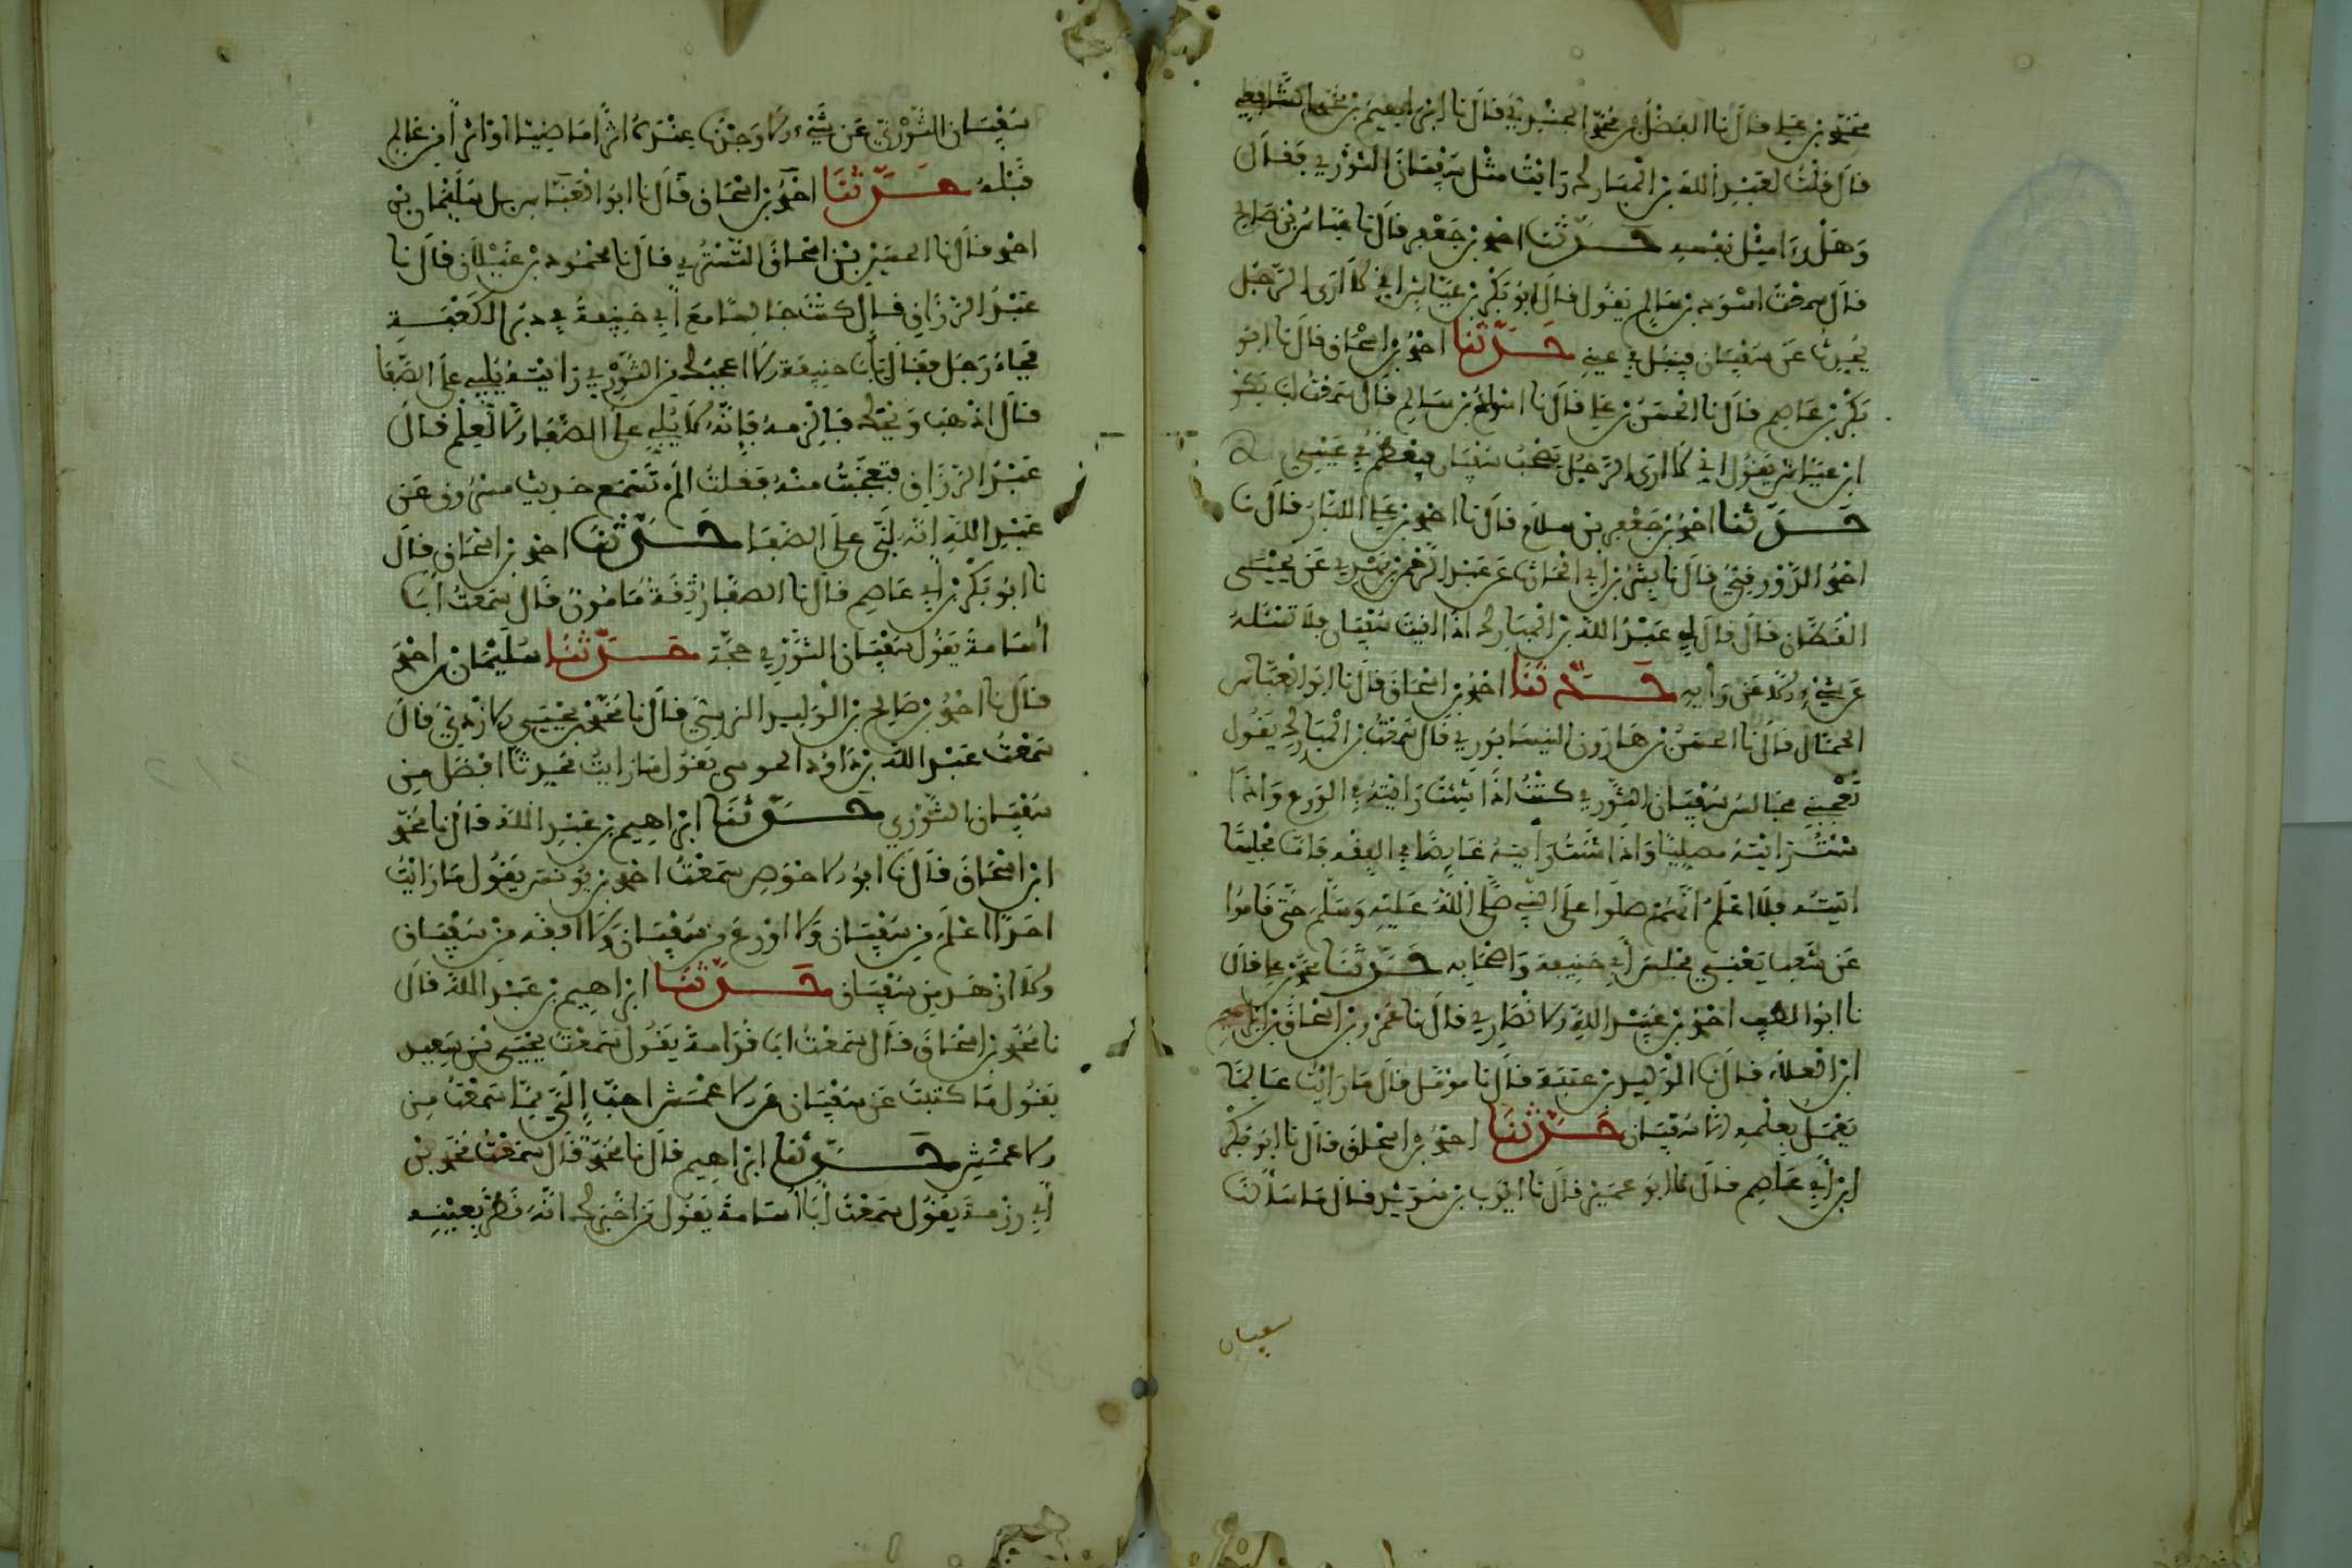 محمد بن علي قال نا الفضل بن محمد الجندي قال نا ابراهيم بن محمد الشافعي
قال قلت لعبد الله بن المبارك رايت مثل سفيان الثوري فقال
وهل راى مثل نفسه حدثنا احمد بن جعفر قال نا عباس بن صالح
قال سمعت اسود بن سالم يقول قال ابو بكر بن عياش اني لارى الرجل
يحدث عن سفيان فينبل في عيني حدثنا احمد بن اسحاق قال نا ابو
بكر بن عاصم قال نا الحسن بن علي قال نا اسود بن سالم قال سمعت ابا بكر
ابن عياش يقول اني لارى الرجل يصحب سفيان فيعظم في عيني
حدثنا احمد بن جعفر بن سلم قال نا احمد بن علي الابار قال نا
احمد الدورقي قال نا بشر بن ابي عن عبد الرحمن بن مهدي عن يحيى
القطان قال قال لي عبد الله بن المبارك اذا لقيت سفيان فلا تسئله
عن شيء الا عن رأيه حدثنا احمد بن اسحاق قال نا ابو العباس
الحمال قال نا الحسن بن هارون النيسابوري قال سمعت بن المبارك يقول
تعجبني مجالس سفيان الثوري كنت اذا شئت رايته في الورع واذا
شئت رايته مصليا واذا شئت رايته غايصا في الفقه فاما مجلسا
اتيته فلا اعلم انهم صلوا على النبي صلى الله عليه وسلم حتى قاموا
عن شغب يعني مجلس أبي حنيفة واصحابه حدثنا محمد بن علي قال
نا ابو الطيب احمد بن عبيد الله الانطاري قال نا عمرو بن اسحاق بن ابراهيم
ابن العلاء قال نا الوليد بن عتبة قال نا مؤمل قال ما رايت عالما
يعمل بعلمه الا سفيان حدثنا احمد بن اسحاق قال نا ابو بكر
ابن أبي عاصم قال نا ابو عمير قال نا ايوب بن سويد قال ما سألنا
سفيان
سفيان الثوري عن شيء الا وجدنا عنده اثرا ماضيا او اثرا من عالم
قبله حدثنا احمد بن اسحاق قال نا ابو العباس سليمان بن
احمد قال نا الحسين بن اسحاق التستري قال نا محمود بن غيلان قال نا
عبد الرزاق قال كنت جالسا مع أبي حنيفة في دبر الكعبة
فجاءه رجل فقال يابا حنيفة الا اعجبك من الثوري رايته يلبي على الصفا
قال اذهب ويحك فالزمه فانه لا يلبي على الصفا الا لعلم قال
عبد الرزاق فتعجبت منه فقلت الم تسمع حديث مسروق عن
عبد الله انه لبى على الصفا حدثنا احمد بن اسحاق قال
نا ابو بكر بن أبي عاصم قال نا الصفار ثقة مامون قال سمعت أبا
أسامة يقول سفيان الثوري حجة حدثنا سليمان بن احمد
قال نا احمد بن صالح بن الوليد النرسي قال نا محمد بن يحيى الازدي قال
سمعت عبد الله بن داود يقول ما رايت محدثا افضل من
سفيان الثوري حدثنا ابراهيم بن عبد الله قال نا محمد
ابن اسحاق قال نا ابو الاحوص سمعت احمد بن يونس يقول ما رايت
احدا اعلم من سفيان ولا اورع من سفيان ولا افقه من سفيان
ولا ازهد من سفيان حدثنا ابراهيم بن عبد الله قال
نا محمد بن اسحاق قال سمعت ابا قدامة يقول سمعت يحيى بن سعيد
يقول ما كتبت عن سفيان عن الاعمش احب إلي مما سمعت من
الاعمش حدثنا ابراهيم قال نا محمد قال سمعت محمد بن
أبي رزمة يقول سمعت أبا أسامة يقول من اخبرك انه نظر بعينه